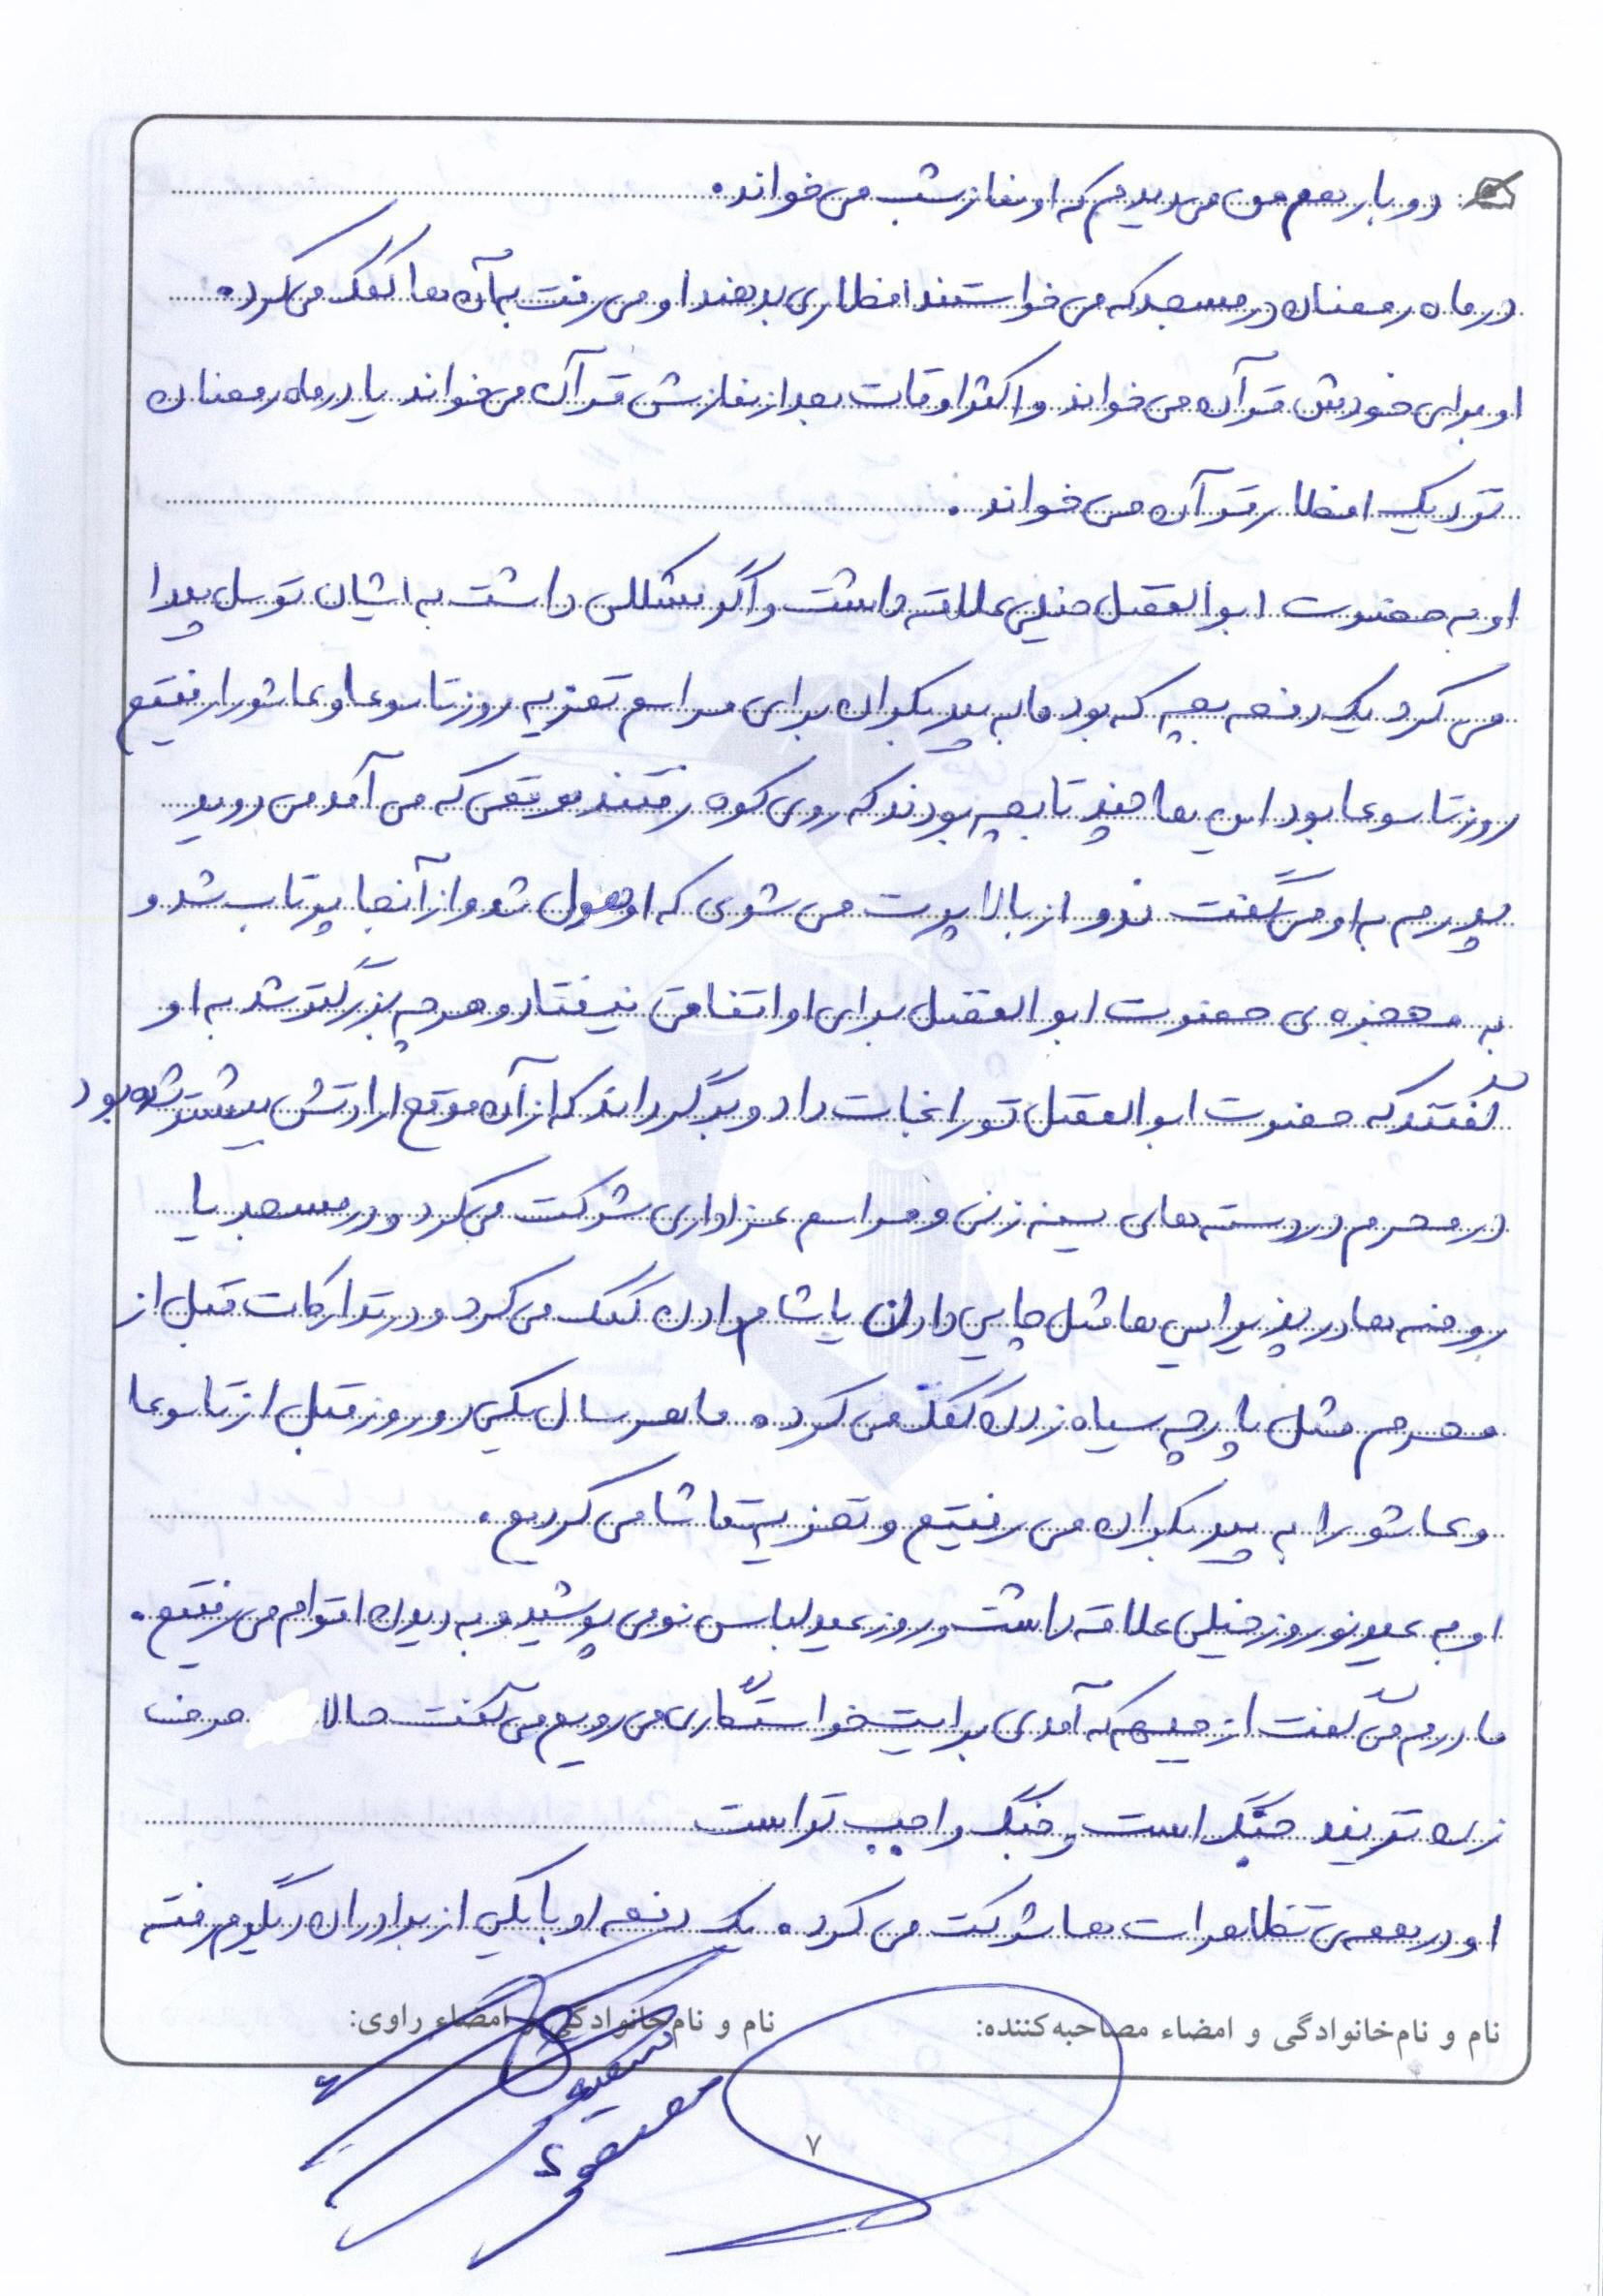 دوبار هم من می‌دیدم که او نماز شب می‌خواند.
در ماه رمضان در مسجد که می‌خواستند افطاری بدهند او می‌رفت به آن ها کمک می‌کرد.
او برای خودش قرآن می‌خواند و اکثر اوقات بعد از نمازش قرآن می‌خواند یا در ماه رمضان
نزدیک افطار قرآن می‌خواند.
او به حضرت ابوالفضل خیلی علاقه داشت و اگر مشکلی داشت به ایشان توسل پیدا
می‌کرد یک دفعه بچه که بود ما به پیربکران برای مراسم تعزیه روز تاسوعا و عاشورا رفتیم
روز تاسوعا بود این ها چند تا بچه بودند که روی کوه رفتند موقعی که می‌آمد می‌دوید
پدرم به او می‌گفت ندو از بالا پرت می‌شوی که او هول شد و از آنجا پرتاب شد و
به معجزه‌ی حضرت ابوالفضل برای او اتفاقی نیفتاد و هرچه بزرگتر شد به او
گفتند که حضرت ابوالفضل تو را نجات داد و برگرداند که از آن موقع ارادتش بیشتر شده بود
در محرم در دسته های سینه زنی و مراسم عزاداری شرکت می‌کرد و در مسجد یا
روضه ها در پذیرایی ها مثل چایی دادن یا شام دادن کمک می‌کرد و در تدارکات قبل از
محرم مثل پارچه سیاه زدن کمک می‌کرد. ما هر سال یکی دو روز قبل از تاسوعا
و عاشورا به پیربکران می‌رفتیم و تعزیه تماشا می‌کردیم.
او به عید نوروز خیلی علاقه داشت و روز عید لباس نو می‌پوشید و به دیدن اقوام می‌رفتیم.
مادرم می‌گفت از جبهه که آمدی برایت خواستگاری می‌رویم می‌گفت حالا حرف
زن نزنید جنگ است و جنگ واجب تر است
او در همه‌ی تظاهرات ها شرکت می‌کرد. یک دفعه او با یکی از برادران دیگرم رفته
نام و نام‌خانوادگی و امضاء مصاحبه‌کننده: نام و نام‌خانوادگی و امضاء راوی:
۷